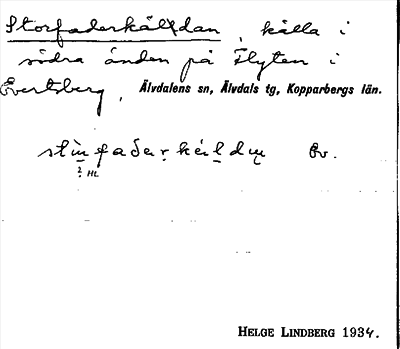 Storfaderkälldan, källa i
södra änden på Flyten i
Evertsberg, Älvdalens sn, Älvdals tg, Kopparbergs län.
Ev.
? HL.
HELGE LINDBERG 1934.